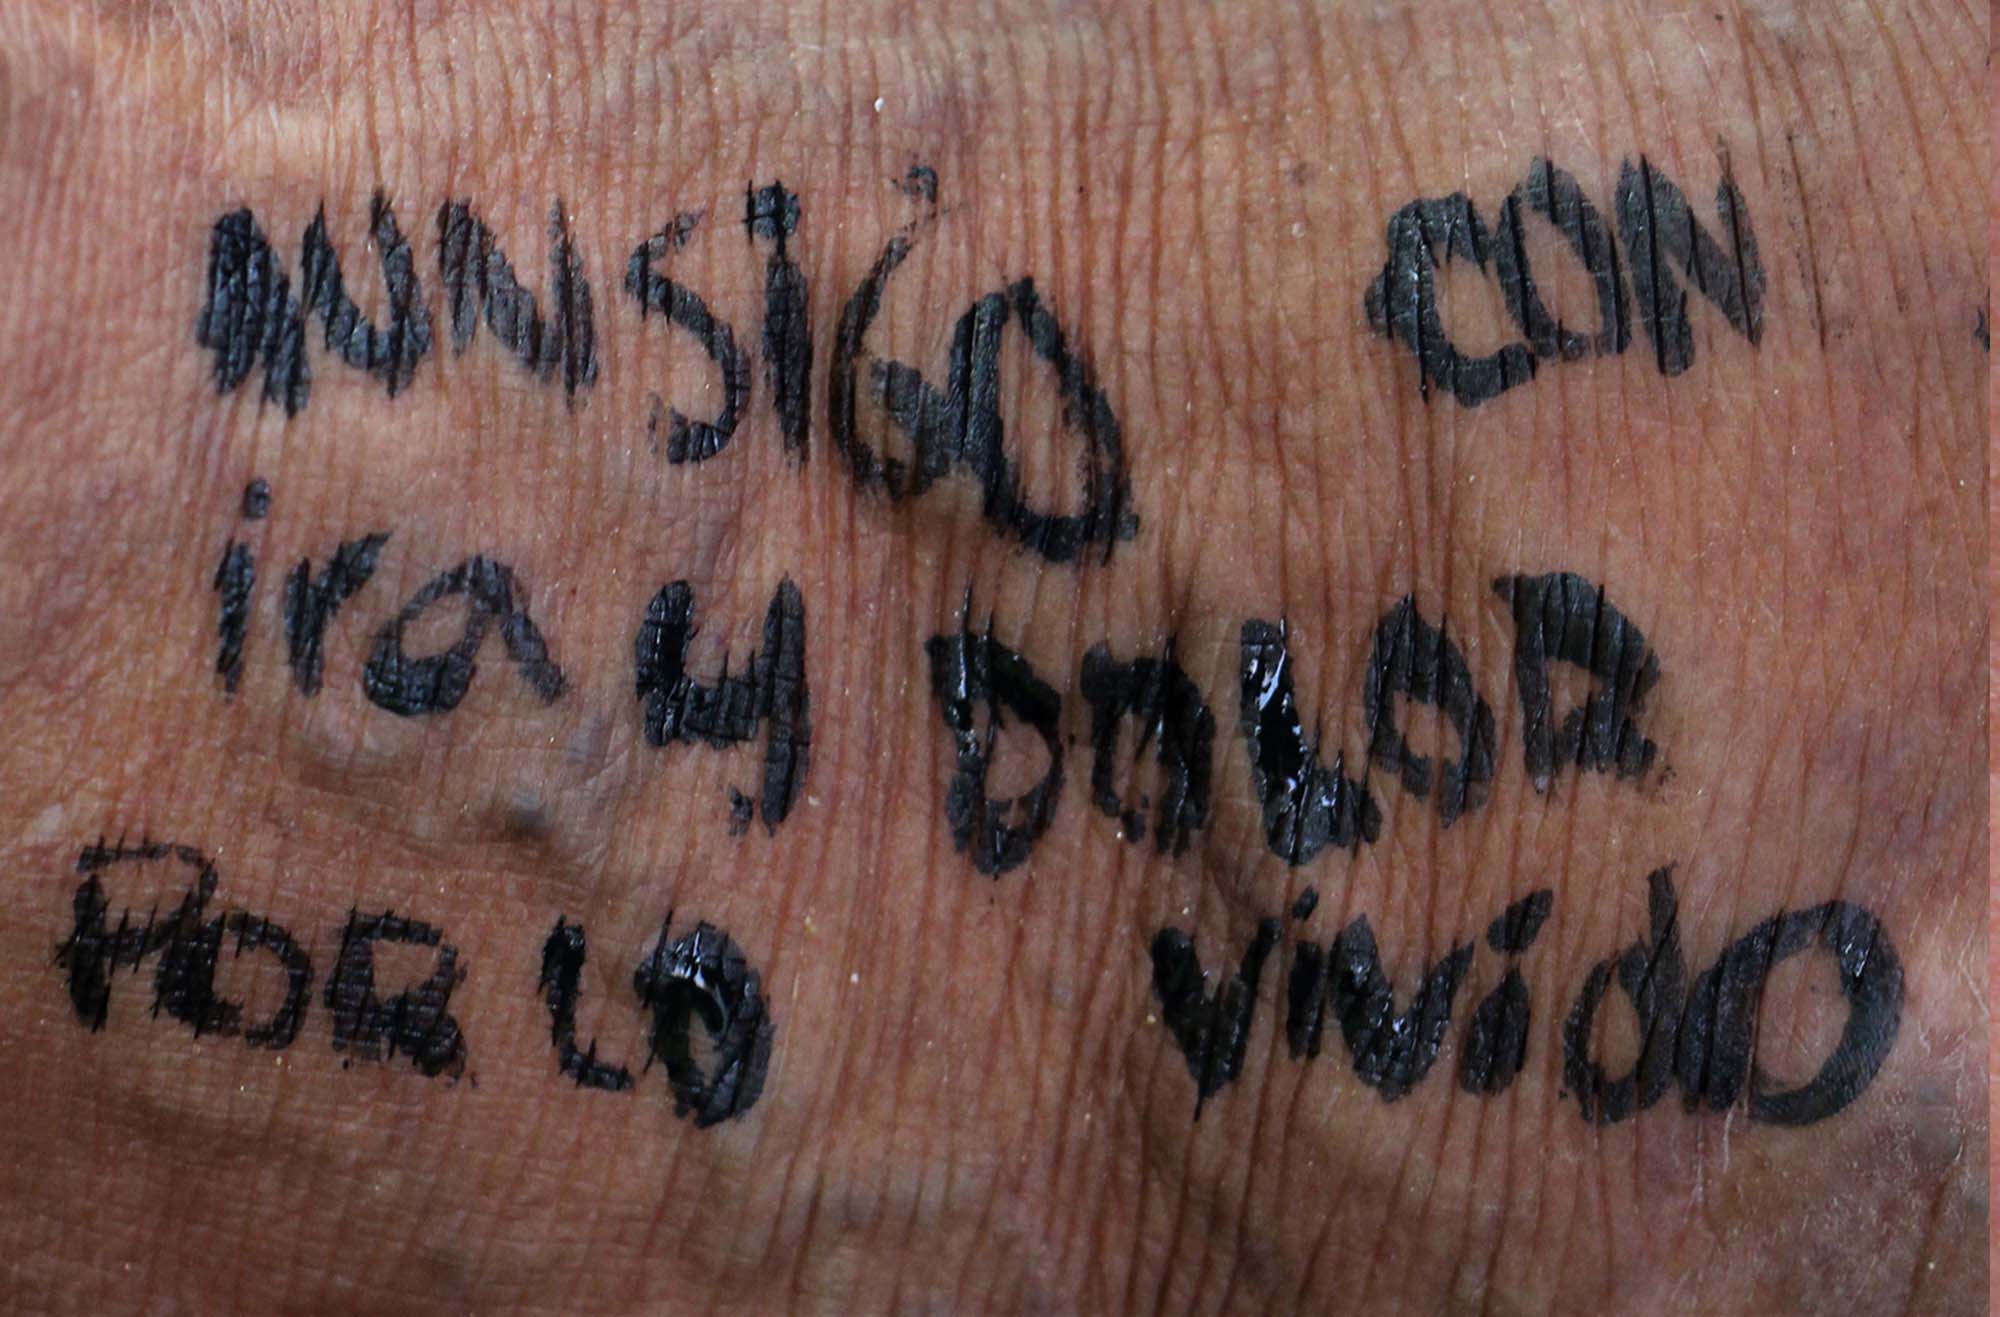 AUN SiGO CON
ira y DOLOR
POR LO ViVido